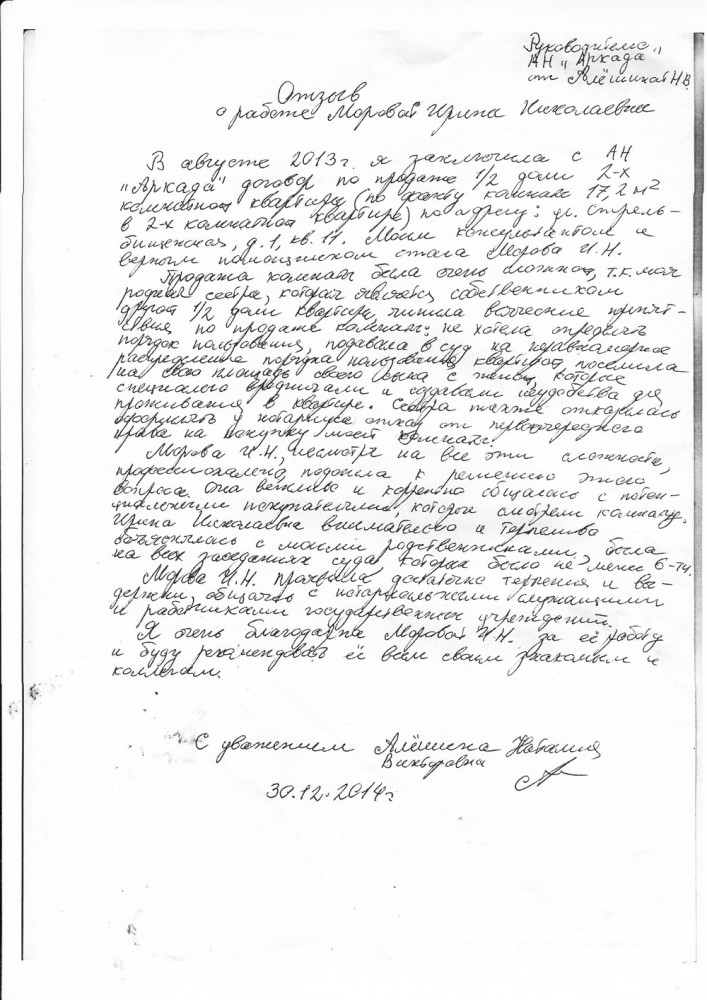 Руководителю
АН "Аркада"
от Алёшиной Н.В.
Отзыв
о работе Моровой Ирины Николаевны
В августе 2013г. я заключила с АН
"Аркада" договор по продаже 1/2 доли 2-х
комнатной квартиры (по факту комнаты 17,2 м2
в 2-х комнатной квартире) по адресу: ул. Стрель-
бищенская, д.1, кв.11. Моим консультантом и
верным помощником стала Морова И.Н.
Продажа комнаты была очень сложной, т.к. моя
родная сестра, которая является собственником
другой 1/2 доли квартиры, чинила всяческие препят-
ствия по продаже комнаты: не хотела определять
порядок пользования, подавала в суд на
распределение порядка пользования квартирой, поселила
на свою площадь своего сына с женой, которые
специально вредничали и создавали неудобства для
проживания в квартире. Сестра также отказалась
оформить у нотариуса отказ от первоочередного
права на покупку моей комнаты.
Морова И.Н., несмотря на все эти сложности,
профессионально подошла к решению этого
вопроса. Она вежливо и корректно общалась с потен-
циальными покупателями, которые смотрели комнату.
Ирина Николаевна внимательно и терпеливо
объяснялась с моими родственниками, была
на всех заседаниях суда, которых было не менее 6-ти.
Морова И.Н. проявила достаточно терпения и вы-
держки, общаясь с нотариальными служащими
и работниками государственных учреждений.
Я очень благодарна Моровой И.Н. за её работу
и буду рекомендовать её всем своим знакомым и
коллегам.
С уважением Алёшина Наталия
Викторовна
30.12.2014г